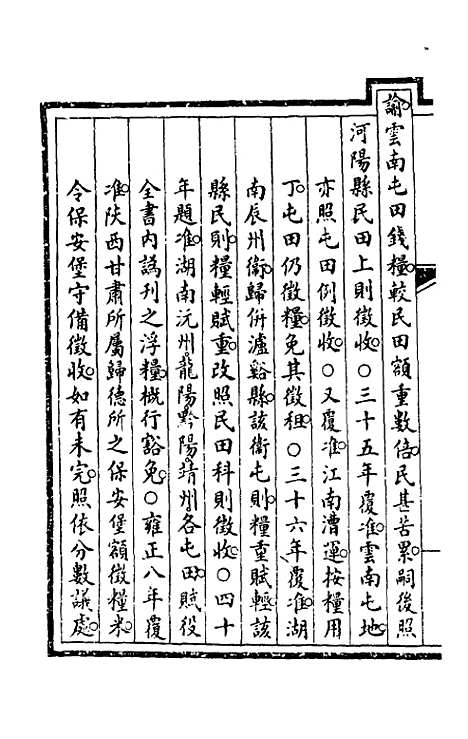 諭雲南屯田錢糧較民田額重數倍民甚苦累嗣後照
河陽縣民田上則徵收○三十五年覆准雲南屯地
亦照屯田例徵收○又覆准江南漕運按糧用
丁屯田仍徵糧免其徵租○三十六年覆准湖
南辰州衞歸併瀘谿縣該衞屯則糧重賦輕該
縣民則糧輕賦重改照民田科則徵收○四十
年題准湖南沅州龍陽黔陽靖州各屯田賦役
全書內譌刊之浮糧概行豁免○雍正八年覆
准陝西甘肅所屬歸德所之保安堡額徵糧米
令保安堡守備徵收如有未完照依分數議處